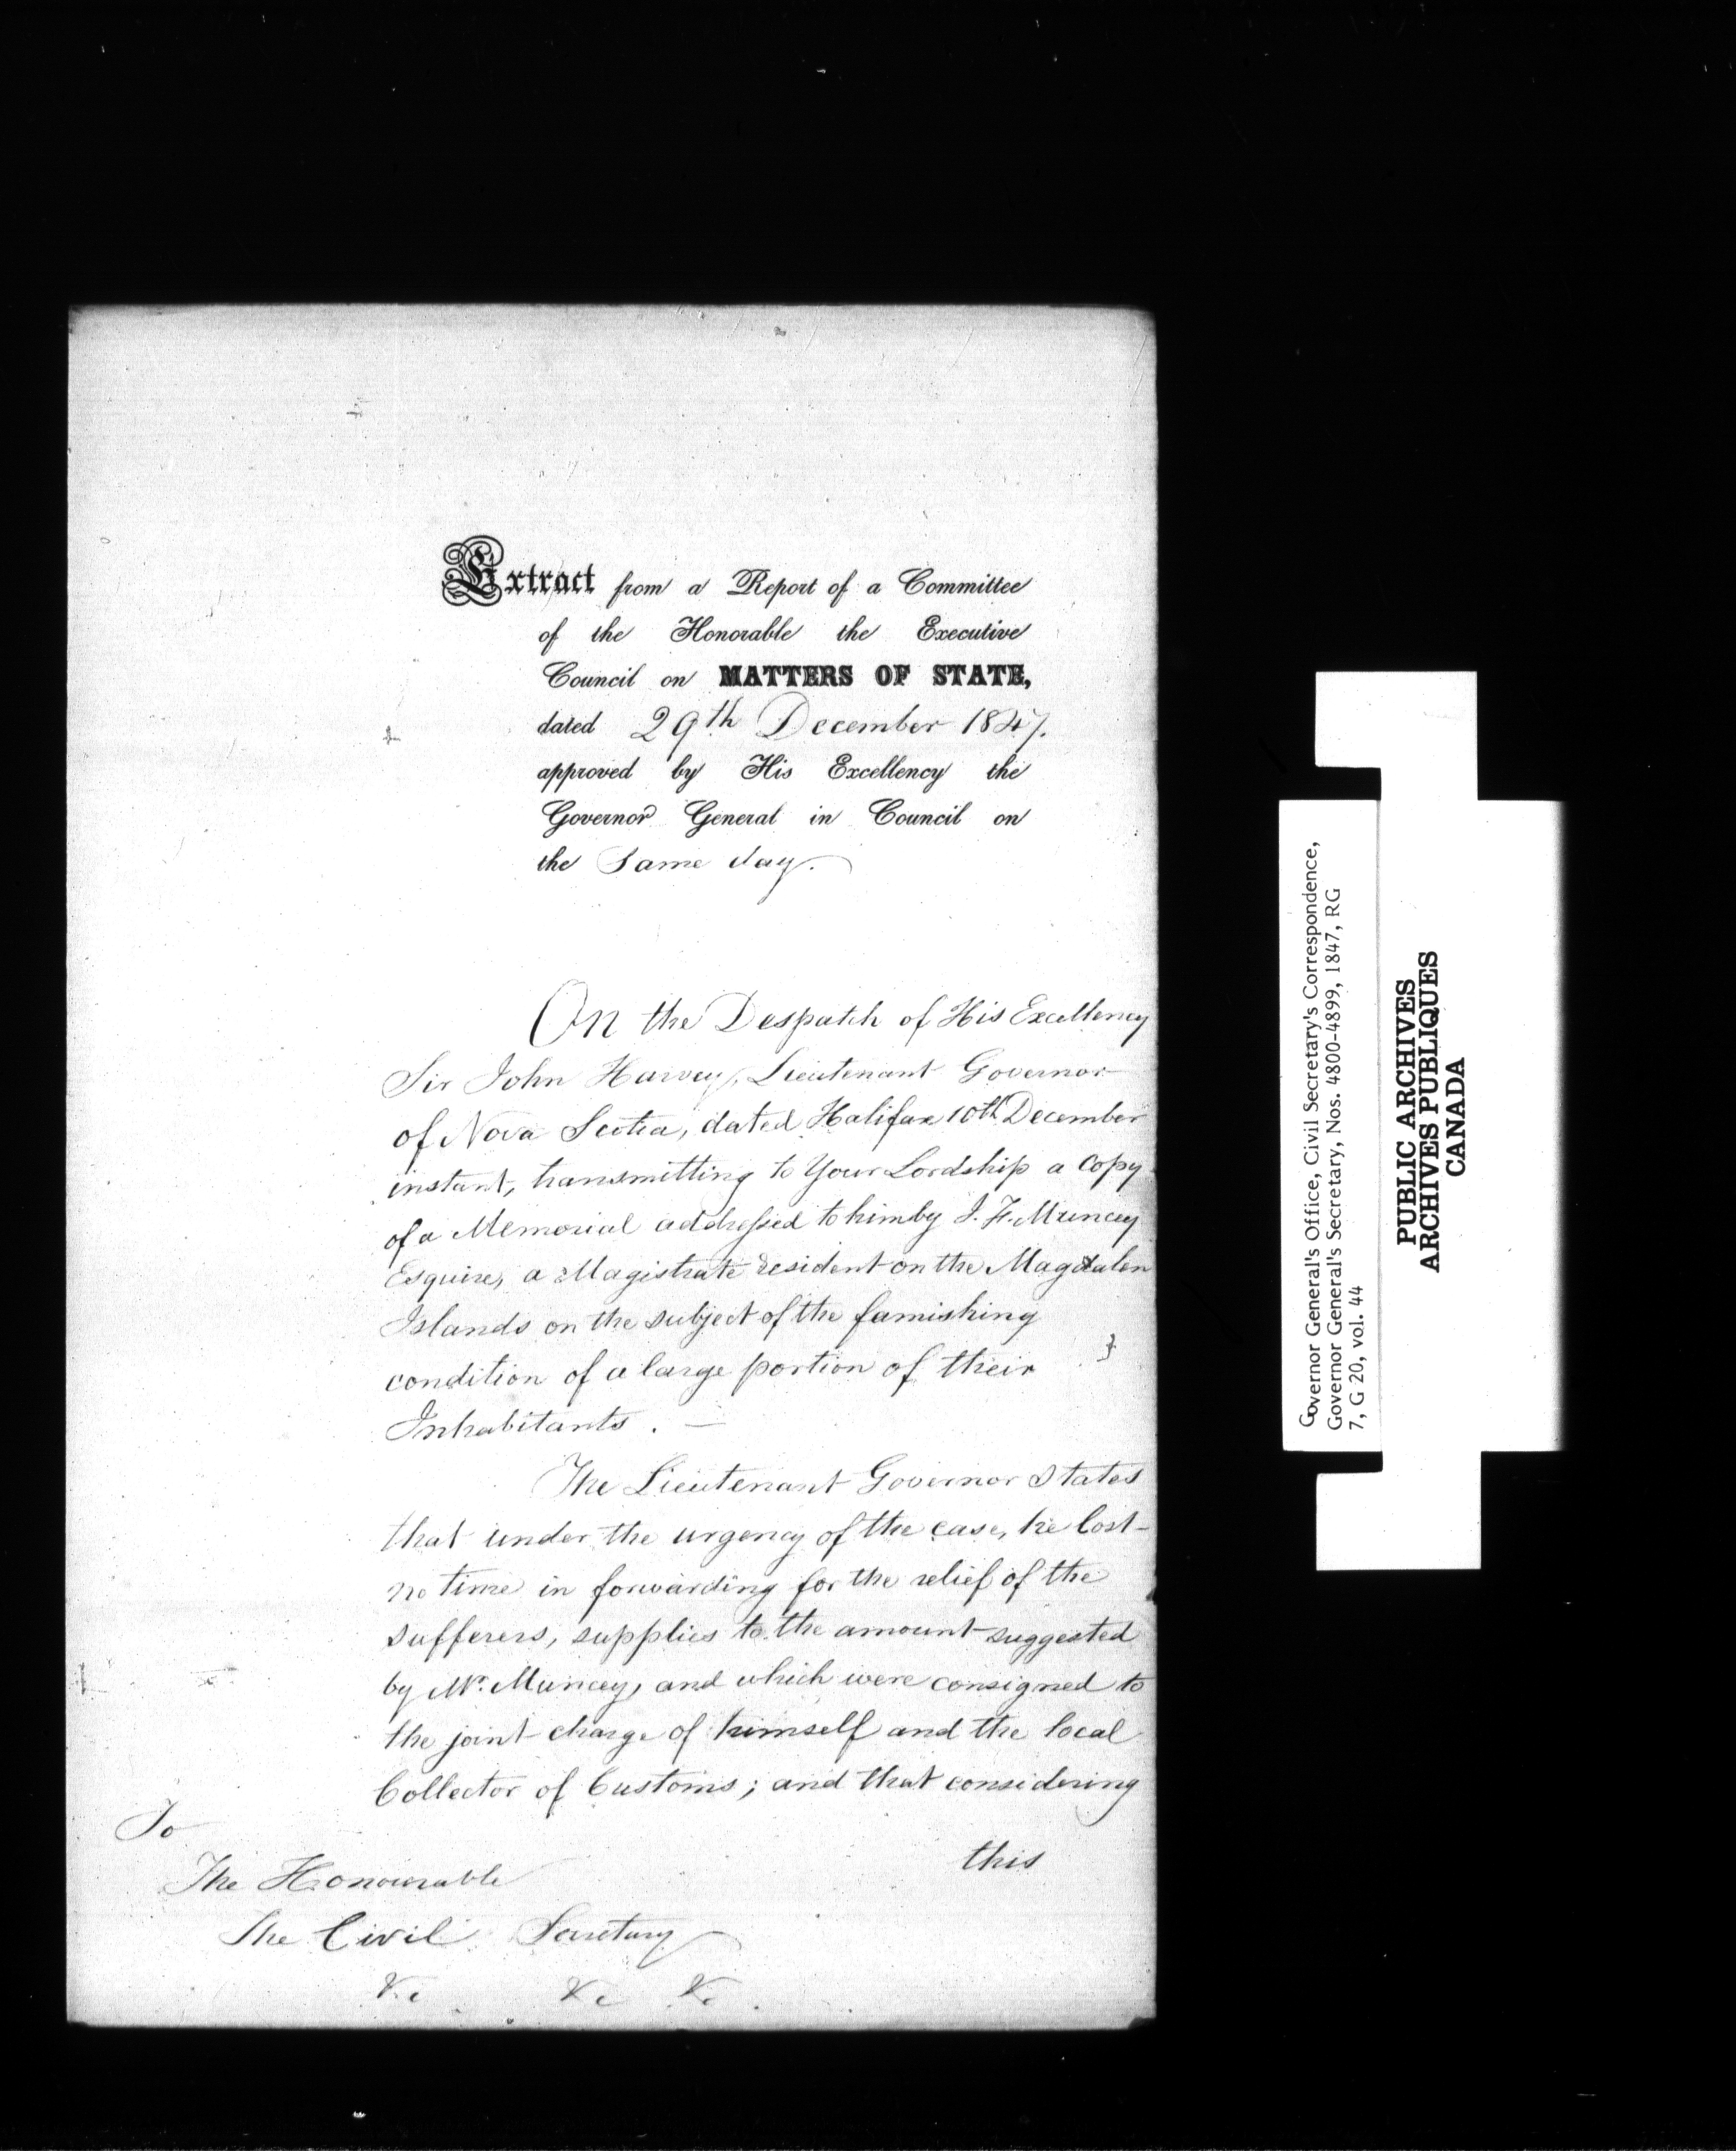 Extract from a Report of a Committee
of the Honorable the Executive
Council on MATTERS OF STATE,
dated 29th December 1847.
approved by His Excellency the
Governor General in Council on
the Same day.
On the Despatch of His Excellency
Sir John Harvey, Lieutenant Governor
of Nova Scotia, dated Halifax 10th December
instant, transmitting to Your Lordship a Copy
of a Memorial addressed to him by J. F. Muncey
Esquire, a Magistrate resident on the Magdalen
Islands on the subject of the famishing
condition of a large portion of their
Inhabitants. —
The Lieutenant Governor States
that under the urgency of the case, he lost
no time in forwarding for the relief of the
sufferers, supplies to the amount suggested
by Mr. Muncey, and which were consigned to
the joint charge of himself and the local
Collector of Customs; and that considering
this
To
The Honourable
The Civil Secretary
&c &c &c.
Governor General's Office, Civil Secretary's Correspondence,
Governor General's Secretary, Nos. 4800-4899, 1847, RG
7, G 20, vol. 44
PUBLIC ARCHIVES
ARCHIVES PUBLIQUES
CANADA